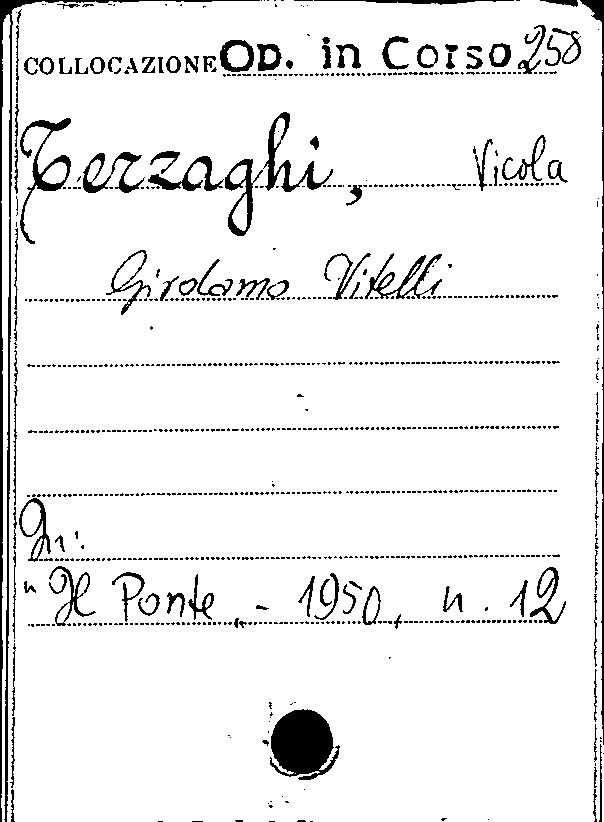 COLLOCAZIONE Op. in Corso 258
Terzaghi, Nicola
Girolamo Vitelli
In:
"Il Ponte„ - 1950, n. 12